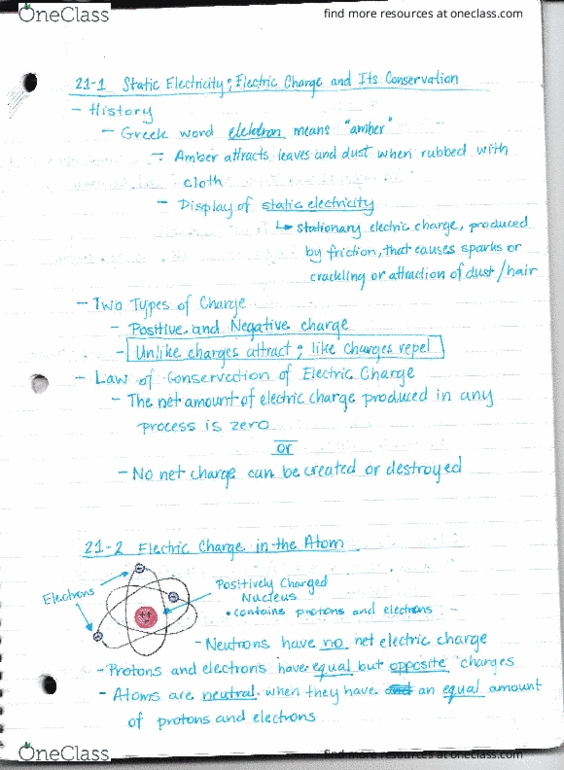 OneClass
find more resources at oneclass.com
21-1 Static Electricity; Electric Charge and Its Conservation
- History
- Greek word elektron means "amber"
- Amber attracts leaves and dust when rubbed with
cloth
- Display of static electricity
↳ stationary electric charge, produced
by friction, that causes sparks or
crackling or attraction of dust/hair
- Two Types of Charge
- Positive and Negative charge
- Unlike charges attract; like charges repel
- Law of Conservation of Electric Charge
- The net amount of electric charge produced in any
process is zero
or
- No net charge can be created or destroyed
21-2 Electric Charge in the Atom
Electrons
Positively Charged
Nucleus
• contains protons and electrons
- Neutrons have no net electric charge
- Protons and electrons have equal but opposite charges
- Atoms are neutral when they have an equal amount
of protons and electrons
OneClass
find more resources at oneclass.com